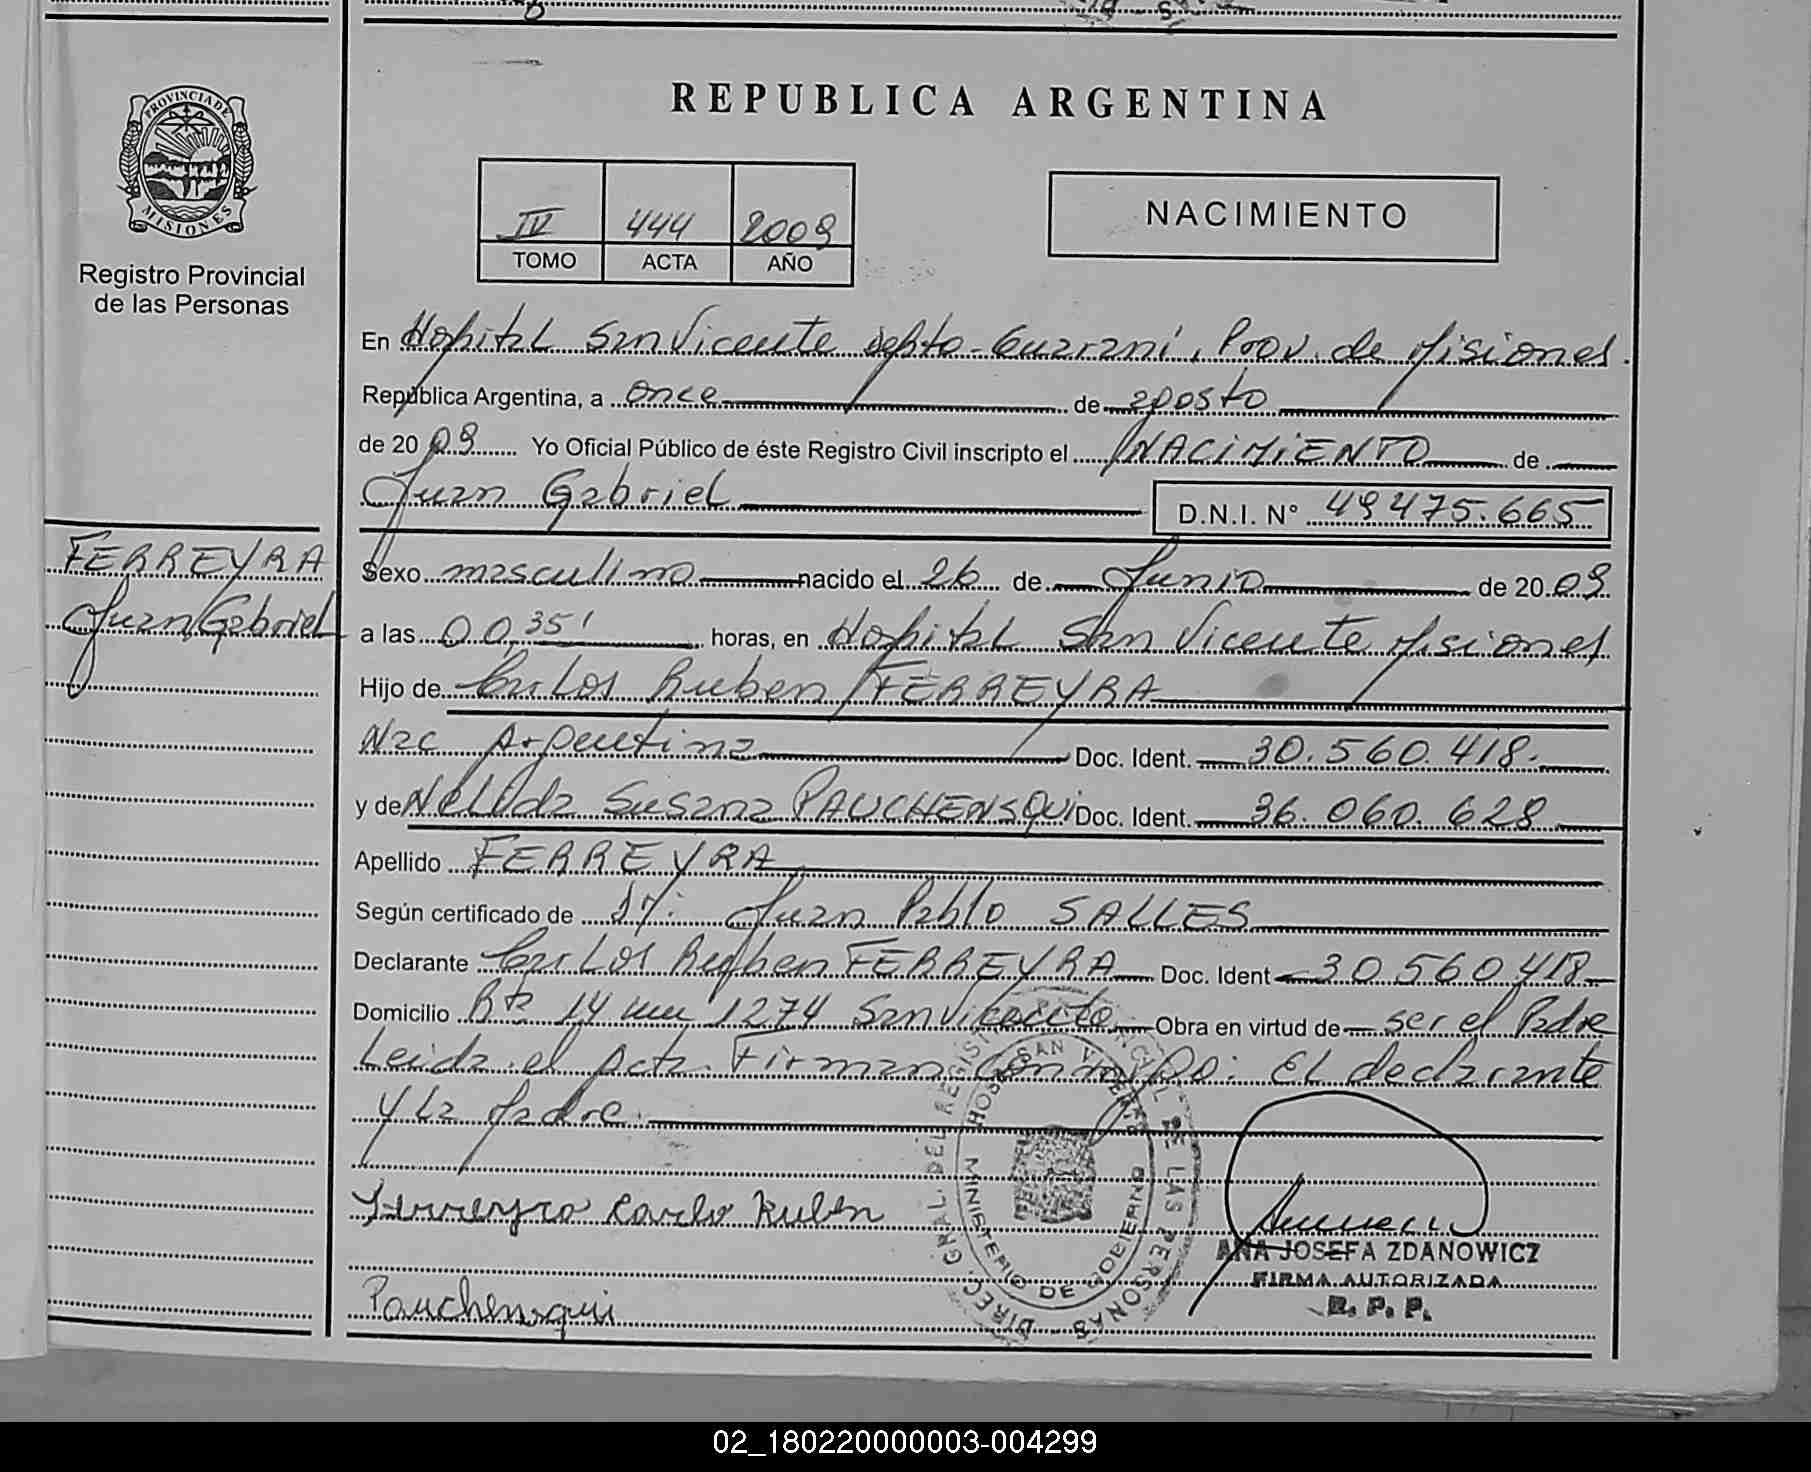 REPUBLICA ARGENTINA
PROVINCIA DE MISIONES
Registro Provincial
de las Personas
IV 444 2009
TOMO ACTA AÑO
NACIMIENTO
En Hospital San Vicente depto. Guarani, Prov. de Misiones.
República Argentina, a once de agosto
de 20 09 Yo Oficial Público de éste Registro Civil inscripto el NACIMIENTO de
Juan Gabriel D.N.I. N° 49475.665
FERREYRA
Juan Gabriel
Sexo masculino nacido el 26 de Junio de 20 09
a las 00,35' horas, en Hospital San Vicente Misiones
Hijo de Carlos Ruben FERREYRA
Nac Argentina Doc. Ident. 30.560.418.
y de Nelida Susana PAUCHENSQUI Doc. Ident. 36.060.628
Apellido FERREYRA
Según certificado de Dr. Juan Pablo SALLES
Declarante Carlos Ruben FERREYRA Doc. Ident 30560418
Domicilio Rta 14 1274 San Vicente Obra en virtud de ser el Padre
Leida el acta Firman conmigo: El declarante
y la Madre.
Ferreyra Carlo Ruben
Pauchensqui
DIREC. GRAL. DEL REGISTRO PROVINCIAL DE LAS PERSONAS
HOSP. SAN VICENTE
MINISTERIO DE GOBIERNO
ANA JOSEFA ZDANOWICZ
FIRMA AUTORIZADA
R. P. P.
02_180220000003-004299